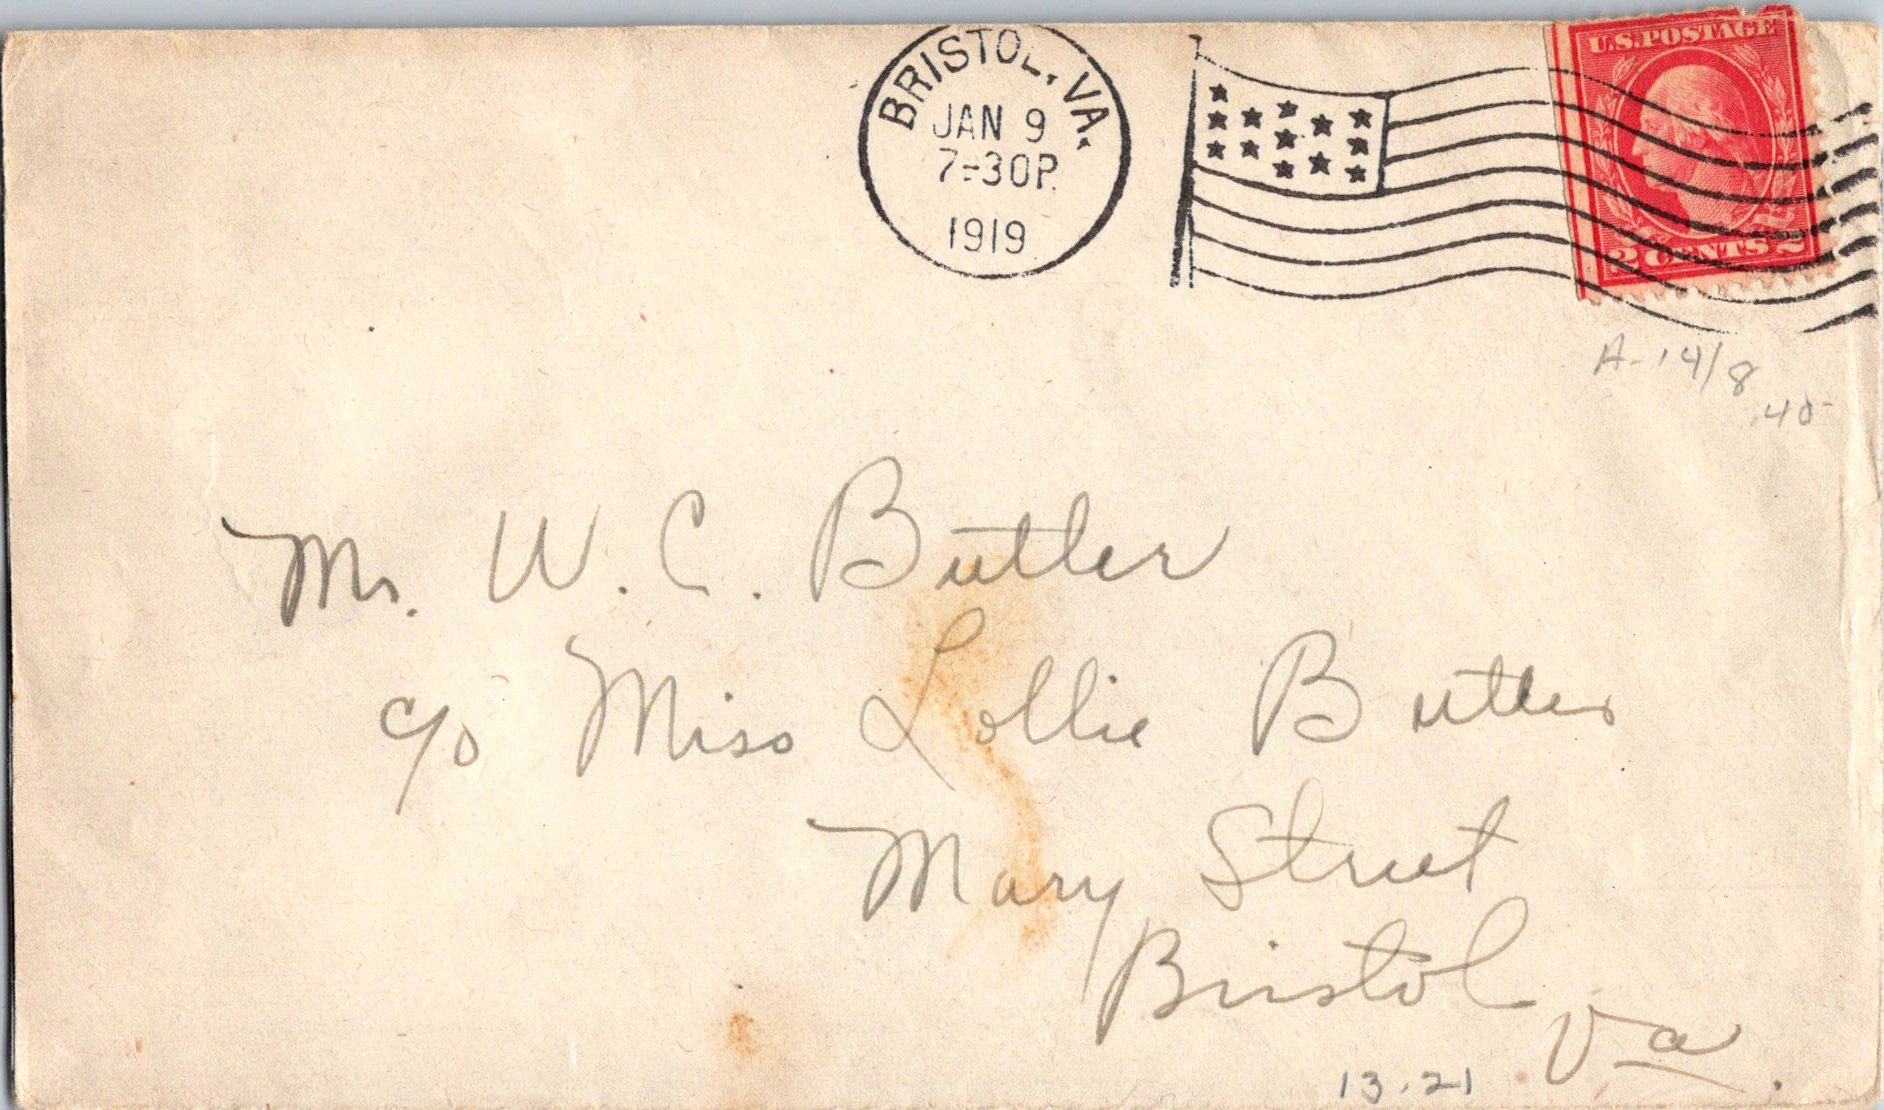 BRISTOL, VA.
JAN 9
7-30P.
1919
U.S. POSTAGE
2 CENTS 2
A-14/8
.40
Mr. W. C. Butler
c/o Miss Lollie Butler
Mary Street
Bristol
Va.
13.21